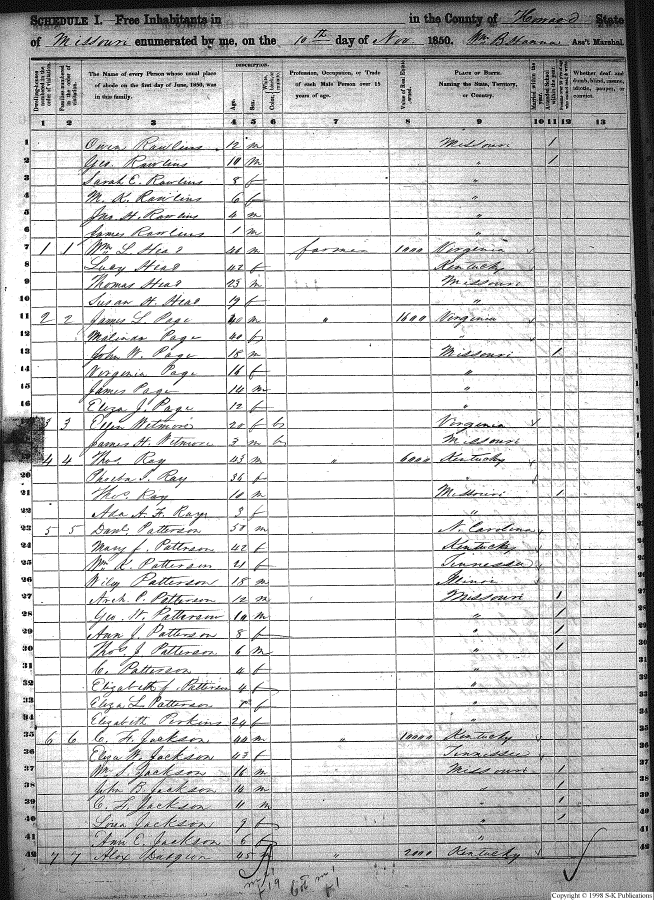 SCHEDULE I. Free Inhabitants in in the County of Howard State
of Missouri enumerated by me, on the 10th day of Nov 1850. Wm B Hanna Ass't Marshal.
Dwelling-houses numbered in the order of visitation.
Families numbered in the order of visitation.
The Name of every Person whose usual place of abode on the first day of June, 1850, was in this family.
DESCRIPTION.
Age.
Sex.
Color.
Profession, Occupation, or Trade of each Male Person over 15 years of age.
Value of Real Estate owned.
PLACE OF BIRTH.
Naming the State, Territory, or Country.
Married within the year.
Whether deaf and dumb, blind, insane, idiotic, pauper, or convict.
1 2 3 4 5 6 7 8 9 10 11 12 13
1 Owen Rawlins 12 m Missouri 1
2 Geo. Rawlins 10 m " 1
3 Sarah E. Rawlins 8 f "
4 M. K. Rawlins 6 f "
5 Jno. H. Rawlins 4 m "
6 James Rawlins 1 m "
7 1 1 Wm L. Head m farmer 1000 Virginia
8 Lucy Head 42 f Kentucky
9 Thomas Head 23 m Missouri
10 Susan H. Head 19 f "
11 2 2 James L. Page m " 1600 Virginia
12 Malinda Page 40 f "
13 John W. Page 18 m Missouri 1
14 Virginia Page 16 f "
15 James Page 14 m "
16 Eliza J. Page 12 f "
3 3 Ellen Wilmore 20 f b Virginia
James H. Wilmore 3 m b Missouri
4 4 Thos. Ray 43 m " 6000 Kentucky
20 Phoeba J. Ray 36 f "
21 Thos Ray 10 m Missouri 1
22 Ada A. F. Ray 3 f "
23 5 5 Danl. Patterson 58 m N. Carolina
24 Mary J. Patterson 42 f Kentucky
25 Wm K. Patterson 21 f Tinnessee
26 Wiley Patterson 18 m
27 Arch. P. Patterson 12 m Missouri 1
28 Geo. W. Patterson 10 m " 1
29 Ann J. Patterson 8 f " 1
30 Thos J. Patterson 6 m " 1
31 C. Patterson 4 f "
32 Elizabeth J. Patterson 4 f "
33 Eliza L. Patterson f "
34 Elizabeth Perkins 24 f "
35 6 6 C. F. Jackson 44 m " 10000 Kentucky
36 Eliza W. Jackson 43 f Tinnessee
37 Wm S. Jackson 16 m Missouri 1
38 John B. Jackson 14 m " 1
39 C. F. Jackson 11 m " 1
40 Jackson 9 f " 1
41 Ann E. Jackson 6 f "
42 7 7 Alex 45 " 2000 Kentucky
Copyright © 1998 S-K Publications